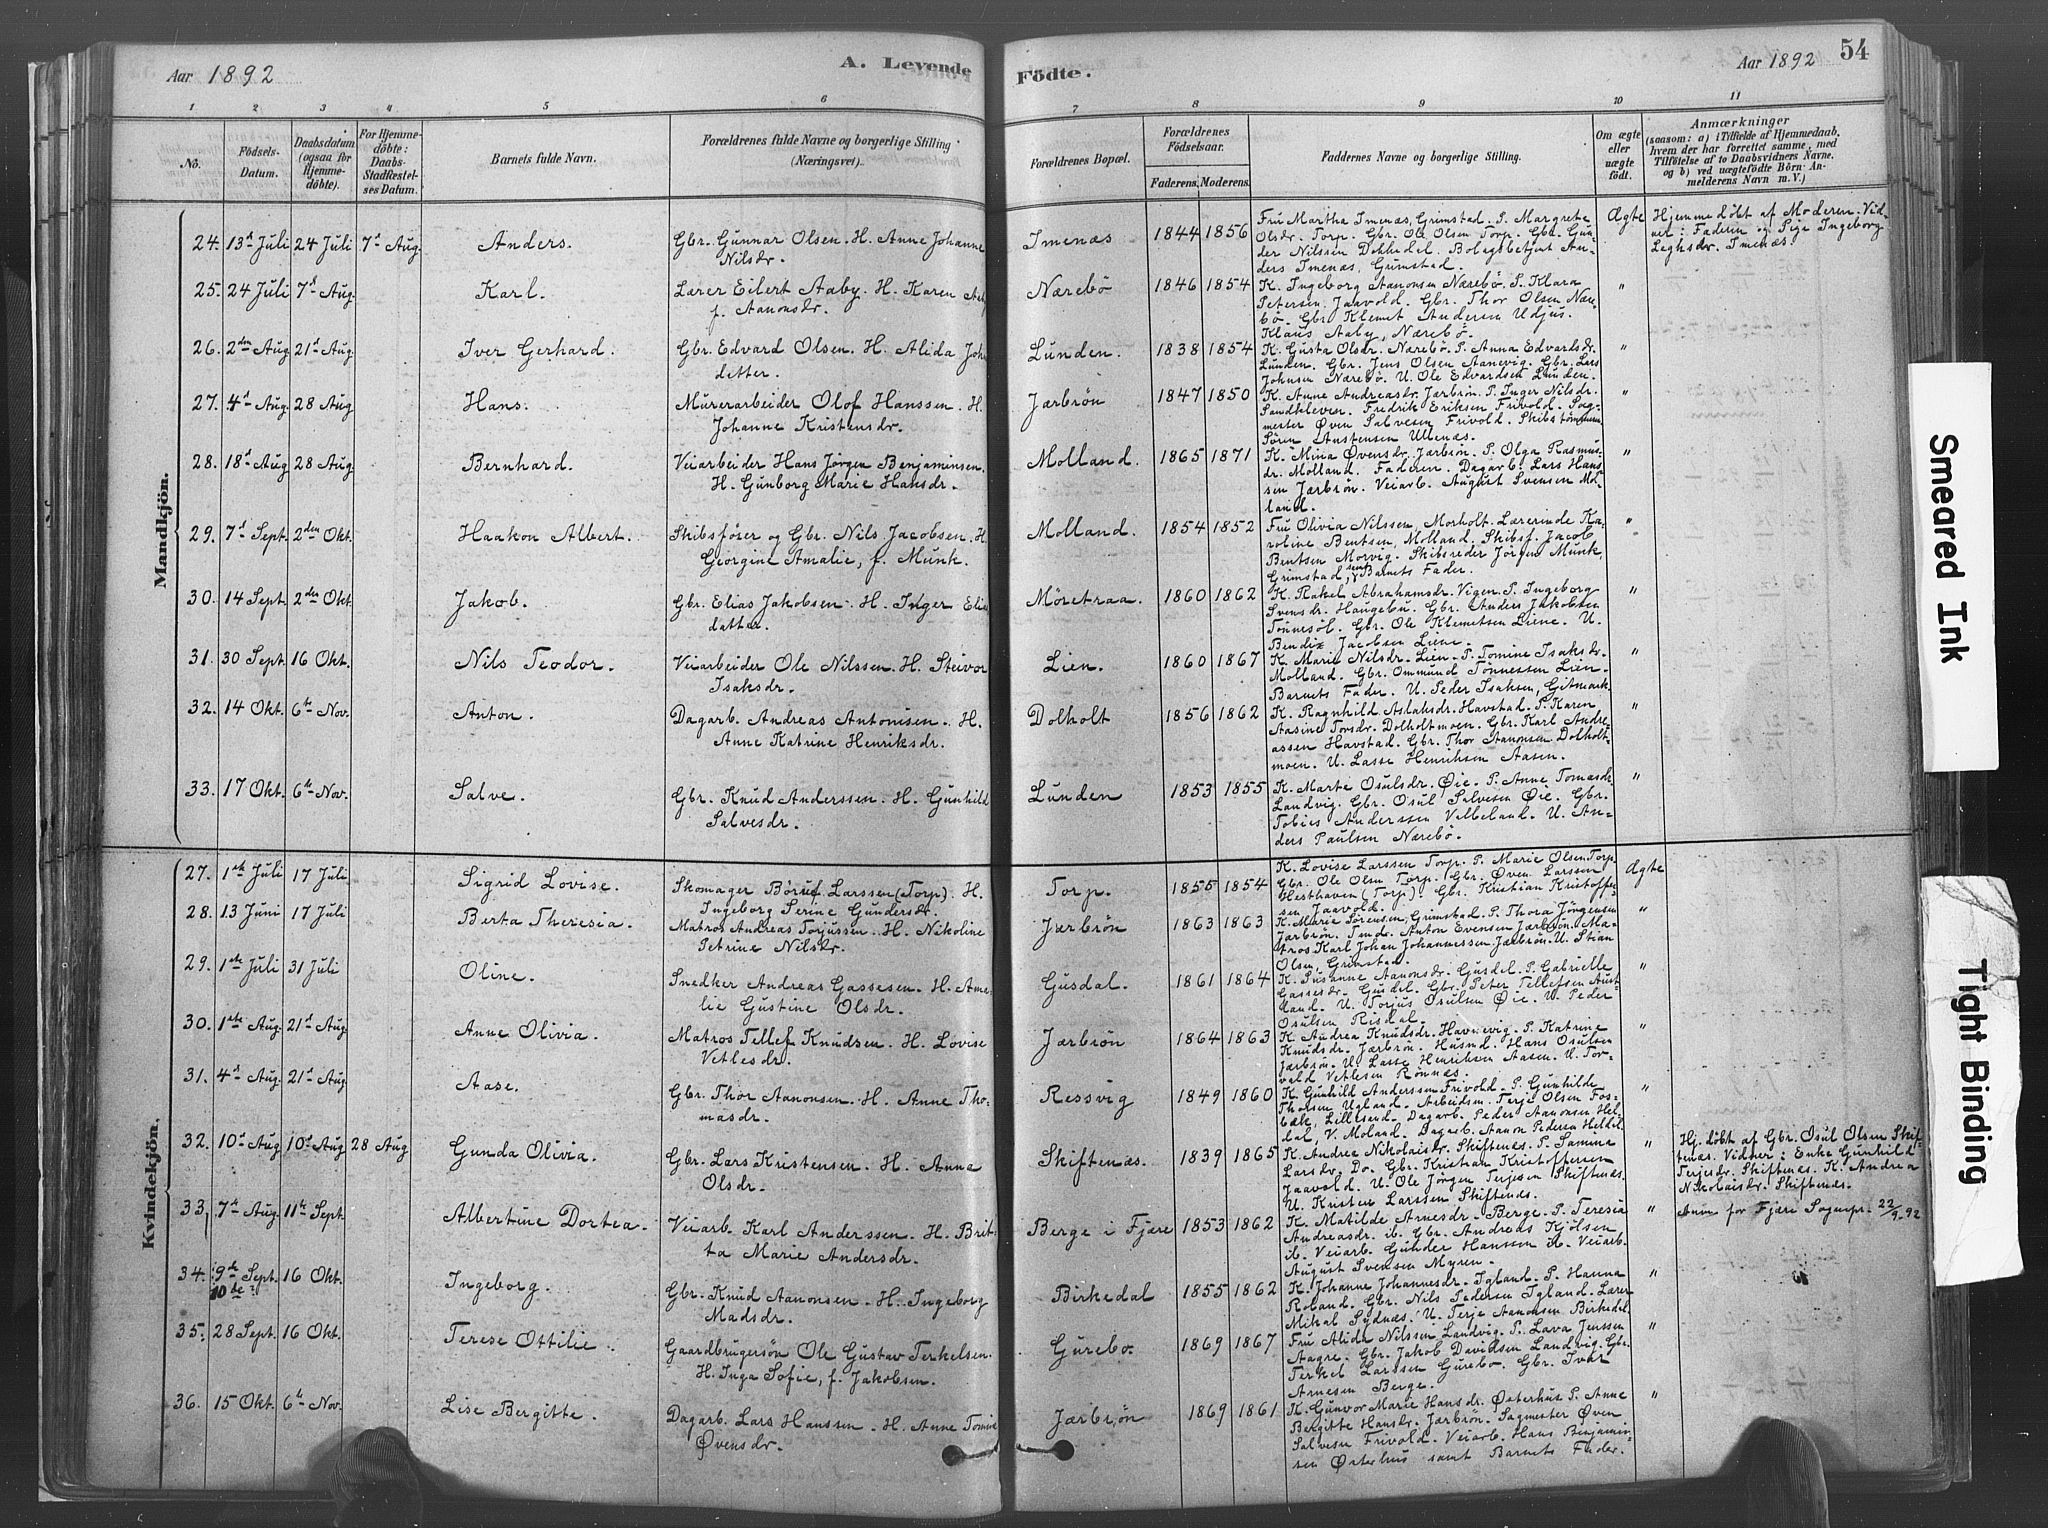 Aar 1892
A. Levende
Födte.
Aar 1892
54
1 2 3 4 5 6 7 8 9 10 11
No.
Födsels-
Datum.
Daabsdatum
(ogsaa for
Hjemme-
döbte).
For Hjemme-
döbte:
Daabs-
Stadfæstel-
ses Datum.
Barnets fulde Navn.
Forældrenes fulde Navne og borgerlige Stilling
(Næringsvei).
Forældrenes Bopæl.
Forældrenes
Födselsaar.
Faderens.
Moderens.
Faddernes Navne og borgerlige Stilling.
Om ægte
eller
uægte
födt.
Anmærkninger
(saasom: a) i Tilfælde af Hjemmedaab,
hvem der har forrettet samme, med
Tilföielse af to Daabsvidners Navne.
og b) ved uægtefödte Börn: An-
melderens Navn m. V.)
Mandkjön.
24. 13d Juli 24 Juli 7d Aug. Anders. Gbr. Gunnar Olsen. H. Anne Johanne
Nilsdr.
Imenæs 1844 1856
Fru Martha Imenæs, Grimstad. P. Margrete
Olsdr. Torp. Gbr. Ole Olsen Torp. Gbr. Gun-
der Nilssen Dokkedal. Bolagsbetjent An-
ders Imenæs, Grimstad.
Ægte
Hjemmedøbt af Moderen. Vid-
ner: Faderen og Pige Ingeborg
Leghsdr. Imenæs.
25. 24 Juli 7d Aug. Karl. Lærer Eilert Aaby. H. Karen
f. Aanonsdr.
Nærebö 1846 1854
K. Ingeborg Aanonsen Nærebö. P. Klara
Petersen Jaavold. Gbr. Thor Olsen Næ-
bö. Gbr. Klemet Andersen Udjus.
Klaus Aaby, Nærebö.
"
26. 2den Aug. 21d Aug. Iver Gerhard. Gbr. Edvard Olsen. H. Alida Joh
datter.
Lunden. 1838 1854
K. Gusta Olsdr. Nærebö. P. Anna Edvardsdr.
Lunden. Gbr. Jens Olsen Aanevig. Gbr. Lars
Johnsen Nærebö. U. Ole Edvardsen Lunden.
"
27. 4d Aug. 28 Aug Hans. Murerarbeider Olof Hanssen. H.
Johanne Kristensdr.
Jærbrön 1847 1850
K. Anne Andreasdr. Jærbrön. P. Inger Nilsdr.
Sandkleven. Fredrik Eriksen Frivold. Sag-
mester Øven Salvesen Frivold. Skibstømmerm.
Sören Austensen Ullenæs.
"
28. 18d Aug 28 Aug. Bernhard. Veiarbeider Hans Jörgen Benjaminsen.
H. Gunborg Marie Hansdr.
Molland. 1865 1871
K. Mina Øvensdr. Jærbrön. P. Olga Rasmus-
dr. Molland. Faderen. Dagarb. Lars Hans-
sen Jærbrön. Veiarb. August Svensen Mol-
land.
"
29. 7d Sept. 2den Okt. Haakon Albert. Skibsfører og Gbr. Nils Jacobsen. H.
Georgine Amalie, f. Munk.
Molland. 1854 1852
Fru Olivia Nilssen, Morholt. Lærerinde Ka-
roline Bentsen, Molland. Skibsf. Jacob
Bentsen Morvig. Skibsreder Jörgen Munk,
Grimstad, samt Barnets Fader.
"
30. 14 Sept. 2den Okt. Jakob. Gbr. Elias Jakobsen. H. Inger Elias
datter.
Møretraa. 1860 1862
K. Rakel Abrahamsdr. Vigen. P. Ingeborg
Svensdr. Haugebu. Gbr. Anders Jakobsen
Tönnesöl. Gbr. Ole Klemetsen Liene. U.
Bendix Jacobsen Liene.
"
31. 30 Sept. 16 Okt. Nils Teodor. Veiarbeider Ole Nilssen. H. Steivor
Isaksdr.
Lien. 1860 1867
K. Marie Nilsdr. Lien. P. Tomine Isaksdr.
Molland. Gbr. Ommund Tönnessen Lien.
Barnets Fader. U. Peder Isaksen, Gitmark.
"
32. 14 Okt. 6te Nov. Anton. Dagarb. Andreas Antonisen. H.
Anne Katrine Henriksdr.
Dolholt 1856 1862
K. Ragnhild Aslaksdr. Havstad. P. Karen
Aasine Torsdr. Dolholtmoen. Gbr. Karl Andre-
assen Havstad. Gbr. Thor Aanonsen Dolholt-
moen. U. Lasse Henriksen Aasen.
"
33. 17 Okt. 6te Nov. Salve. Gbr. Knud Anderssen. H. Gunhild
Salvesdr.
Lunden 1853 1855
K. Marte Osulsdr. Øie. P. Anne Tomasdr.
Landvig. Gbr. Osul Salvesen Øie. Gbr.
Tobies Anderssen Velleland. U. An-
ders Paulsen Nærebö.
"
Kvindekjön.
27. 1ste Juli 17 Juli Sigrid Lovise. Skomager Börud Larssen (Torp). H.
Ingeborg Serine Gundersdr.
Torp. 1855 1854
K. Lovise Larssen Torp. P. Marie Olsen Torp
Gbr. Ole Olsen Torp. (Gbr. Øven Larssen
Hesthaven (Torp). Gbr. Kristian Kristoffer-
sen Jaavold.
Ægte
28. 13 Juni 17 Juli Berta Theresia. Matros Andreas Torjussen. H. Nikoline
Petrine Nilsdr.
Jærbrön 1863 1863
K. Marie Sörensen, Grimstad. P. Thora Jörgensen
Jærbrön. Tmd. Anton Evensen Jærbrön. Ma-
tros Karl Johan Johannessen Jærbrön. U. Stian
Olsen, Grimstad.
"
29. 1ste Juli 31 Juli Oline. Snedker Andreas Gassesen. H. Ama-
lie Gustine Olsdr.
Gusdal. 1861 1864
K. Susanne Aanonsdr. Gusdal. P. Gabrielle
Gassesdr. Gusdal. Gbr. Peter Tellefsen Aust-
land. U. Torjus Osulsen Øie. U. Peder
Osulsen Risdal.
"
30. 1ste Aug 21d Aug Anne Olivia. Matros Tellef Knudsen. H. Lovise
Vetlesdr.
Jærbrön 1864 1863
K. Andrea Knudsdr. Havnevig. P. Katrine
Knudsdr. Jærbrön. Husmd. Hans Osulsen
Jærbrön. U. Lasse Henriksen Aasen. U. Tor-
vald Vetlesen Rönnæs.
"
31. 4d Aug. 21d Aug. Aase. Gbr. Thor Aanonsen. H. Anne Tho-
masdr.
Ressvig 1849 1860
K. Gunhild Anderssen Frivold. P. Gunhilde
Thorsen Ugland. Arbeidsm. Terje Olsen Fos-
bæk, Lillesand. Dagarb. Peder Aanonsen Hel-
dal, V. Moland. Dagarb. Aanon Pedersen Heldal.
"
32. 10d Aug 10d Aug 28 Aug Gunda Olivia. Gbr. Lars Kristensen. H. Anna
Olsdr.
Skiftenæs. 1839 1865
K. Andrea Nikolaisdr. Skiftenæs. P. Samine
Larsdr. Do. Gbr. Kristian Kristoffersen
Jaavold. U. Ole Jörgen Terjesen Skiftenæs.
U. Kristen Larssen Skiftenæs.
"
Hj. døbt af Gbr. Osul Olsen Skif-
tenæs. Vidner: Enke Gunhild
Terjesdr. Skiftenæs. K. Andrea
Nikolaisdr. Skiftenæs.
33, 7de Aug. 11te Sept. Albertine Dortea. Veiarb. Karl Anderssen. H. Brit-
ta Marie Andersdr.
Berge i Fjære 1853 1862
K. Matilde Arnesdr. Berge. P. Teresia
Andreasdr. ib. Gbr. Andreas Kjölsen
ib. Veiarb. Gunder Hanssen ib. Veiarb.
August Svensen Myren.
"
Anm. for Fjære Sognepr. 22/9. 92
34. 9de Sept. 16 Okt. Ingeborg. Gbr. Knud Aanonsen. H. Ingeborg
10de. Madsdr.
Birkedal 1855 1862
K. Johanne Johannesdr. Igland. P. Hanna
Roland. Gbr. Nils Pedersen Igland. Lærer
Mikal Sydnæs. U. Terje Aanonsen Birkedal.
"
35. 28 Sept. 16 Okt. Terese Ottilie. Gaardbrugersön Ole Gustav Terkelsen.
H. Inga Sofie, f. Jakobsen.
Gurebo 1869 1867
Fru Alida Nilssen Landvig. P. Lava Jenssen
Aagre. Gbr. Jakob Davidsen Landvig. Gbr.
Terkel Larssen Gurebo. Gbr. Ivar
Arnesen Berge.
"
36. 15 Okt. 6te Nov. Lise Bergitte. Dagarb. Lars Hanssen. H. Anne Tomine
Øvensdr.
Jærbrön 1869 1861
K. Gunvor Marie Hansdr. Østerhus. P. Anne
Bergitte Hansdr. Jærbrön. Sagmester Øven
Salvesen Frivold. Veiarb. Hans Benjamin-
sen Østerhus samt Barnets Fader.
"
Smeared Ink
Tight Binding